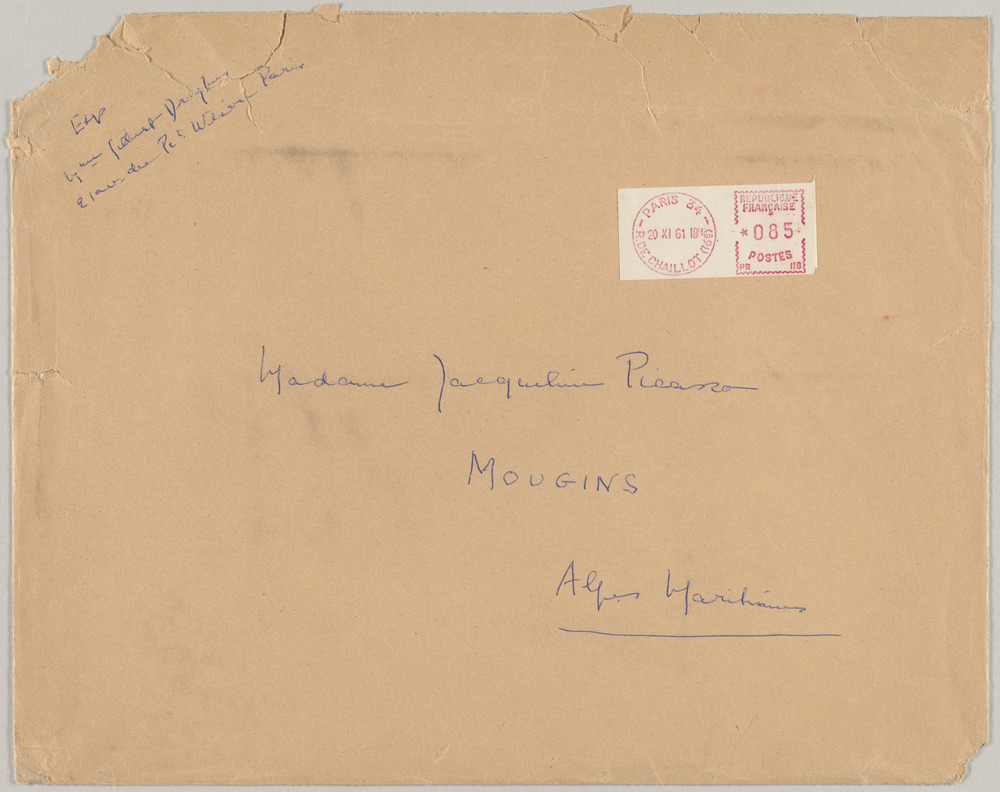 Exp
Mme Gilbert Dreyfus
21 av. du Pt Wilson Paris
PARIS 34
R. DE CHAILLOT (16E)
20 XI 61 18H
REPUBLIQUE
FRANÇAISE
*085*
POSTES
PR 118
Madame Jacqueline Picasso
MOUGINS
Alpes Maritimes